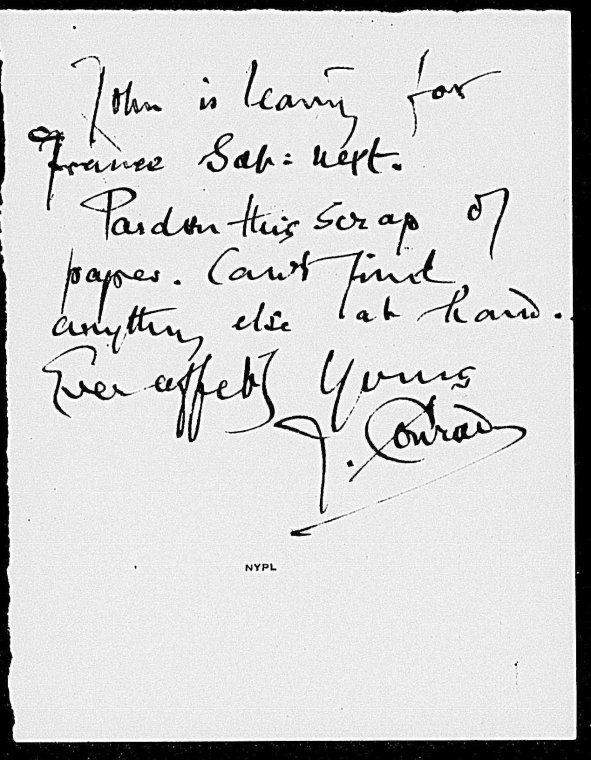 John is leaving for
France Sat: next.
Pardon this scrap of
paper. Can't find
anything else at hand.
Ever affect^ly Yours
J. Conrad
NYPL